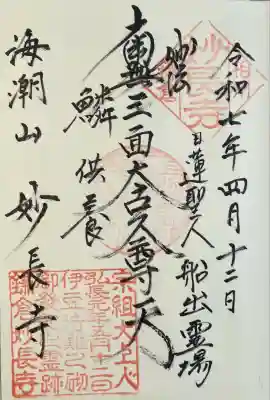 令和七年四月十二日
日蓮聖人船出霊場
妙法
三面大古久尊天
鱗供養
海潮山 妙長寺
妙長寺
宗祖大上人
弘長元年五月十二日
伊豆法難之砌
御船出霊跡
鎌倉妙長寺